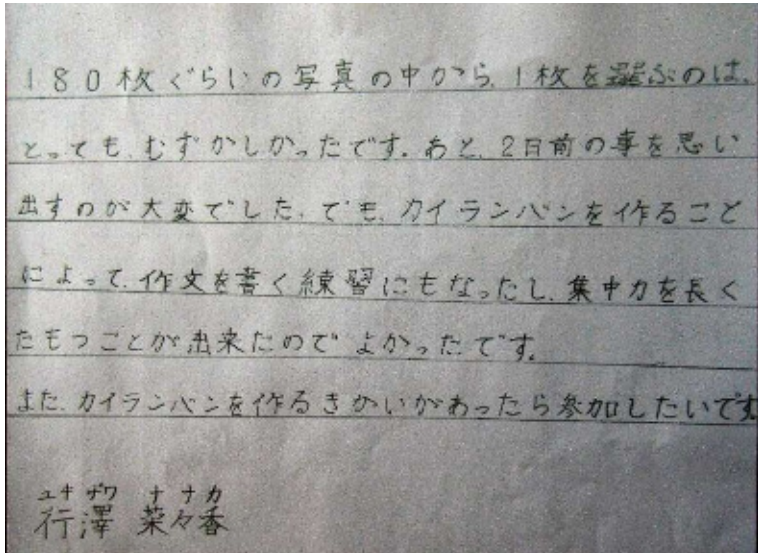 180枚ぐらいの写真の中から、1枚を選ぶのは、
とっても、むずかしかったです。あと、2日前の事を思い
出すのが大変でした。でも、カイランバンを作ること
によって、作文を書く練習にもなったし、集中力を長く
たもつことが出来たのでよかったです。
また、カイランバンを作るきかいがあったら参加したいです
ユキザワ ナナカ
行澤 菜々香